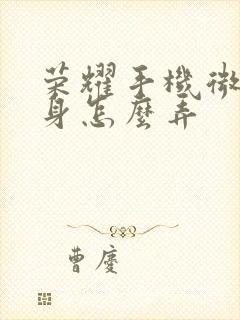 荣耀手機微
身怎麼弄
曹慶